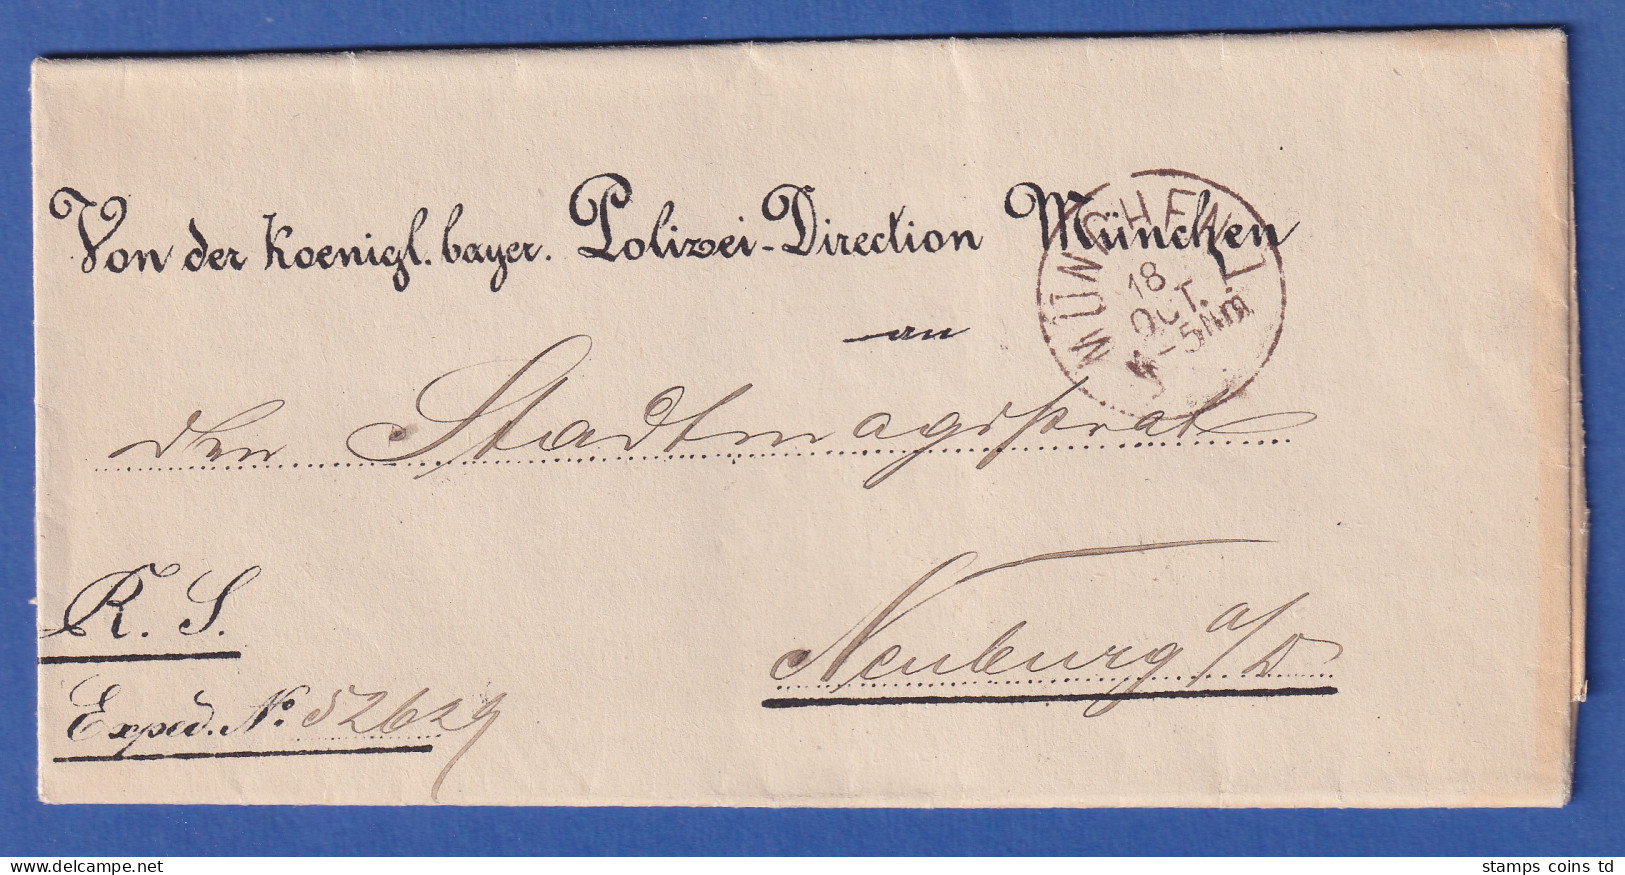 Von der Koenigl. bayer. Polizei-Direction München
MÜNCHEN I.
18
OCT.
4-5 Nm
an
den Stadtmagistrat
R. S.
Neuburg a/D
Exped. No. 52629
stamps coins td